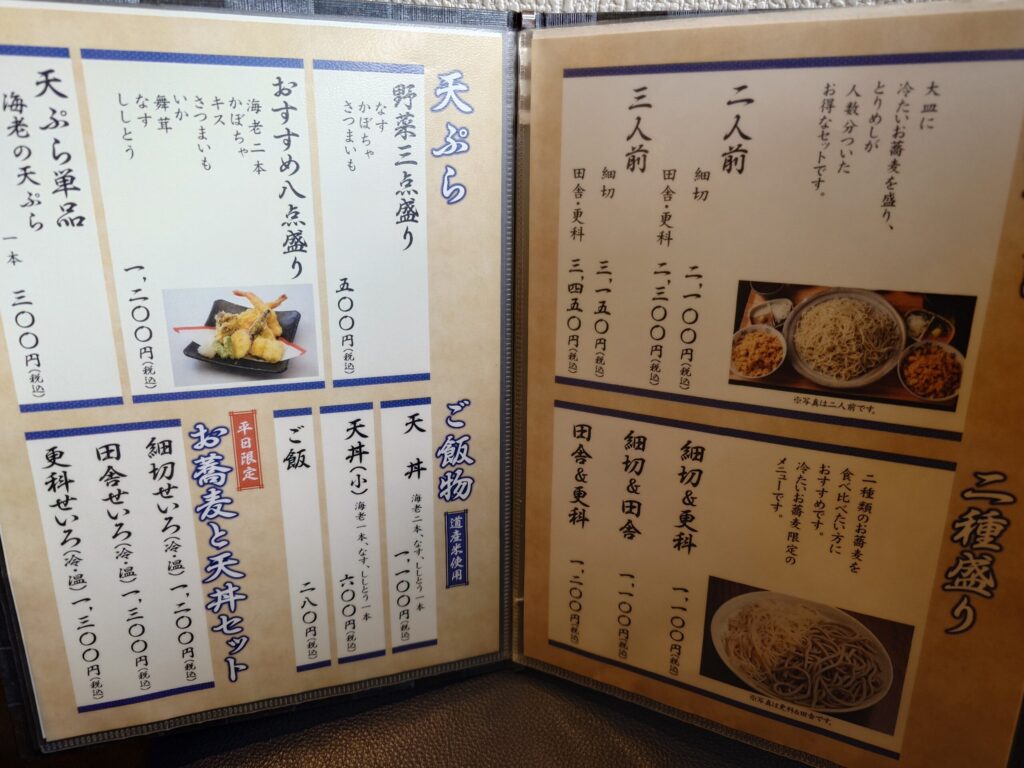 大皿に
冷たいお蕎麦を盛り、
とりめしが
人数分ついた
お得なセットです。
二人前
細切 二、一〇〇円(税込)
田舎・更科 二、三〇〇円(税込)
三人前
細切 三、一五〇円(税込)
田舎・更科 三、四五〇円(税込)
※写真は二人前です。
二種盛り
二種類のお蕎麦を
食べ比べたい方に
おすすめです。
冷たいお蕎麦限定の
メニューです。
細切&更科 一、一〇〇円(税込)
細切&田舎 一、一〇〇円(税込)
田舎&更科 一、二〇〇円(税込)
※写真は更科&田舎です。
天ぷら
野菜三点盛り
なす
かぼちゃ
さつまいも
五〇〇円(税込)
おすすめ八点盛り
海老二本
かぼちゃ
キス
さつまいも
いか
舞茸
なす
ししとう
一、二〇〇円(税込)
天ぷら単品
海老の天ぷら 一本 三〇〇円(税込)
ご飯物
道産米使用
天丼 海老二本、なす、ししとう一本
一、一〇〇円(税込)
天丼(小) 海老一本、なす、ししとう一本
六〇〇円(税込)
ご飯 二八〇円(税込)
平日限定
お蕎麦と天丼セット
細切せいろ(冷・温) 一、二〇〇円(税込)
田舎せいろ(冷・温) 一、三〇〇円(税込)
更科せいろ(冷・温) 一、三〇〇円(税込)